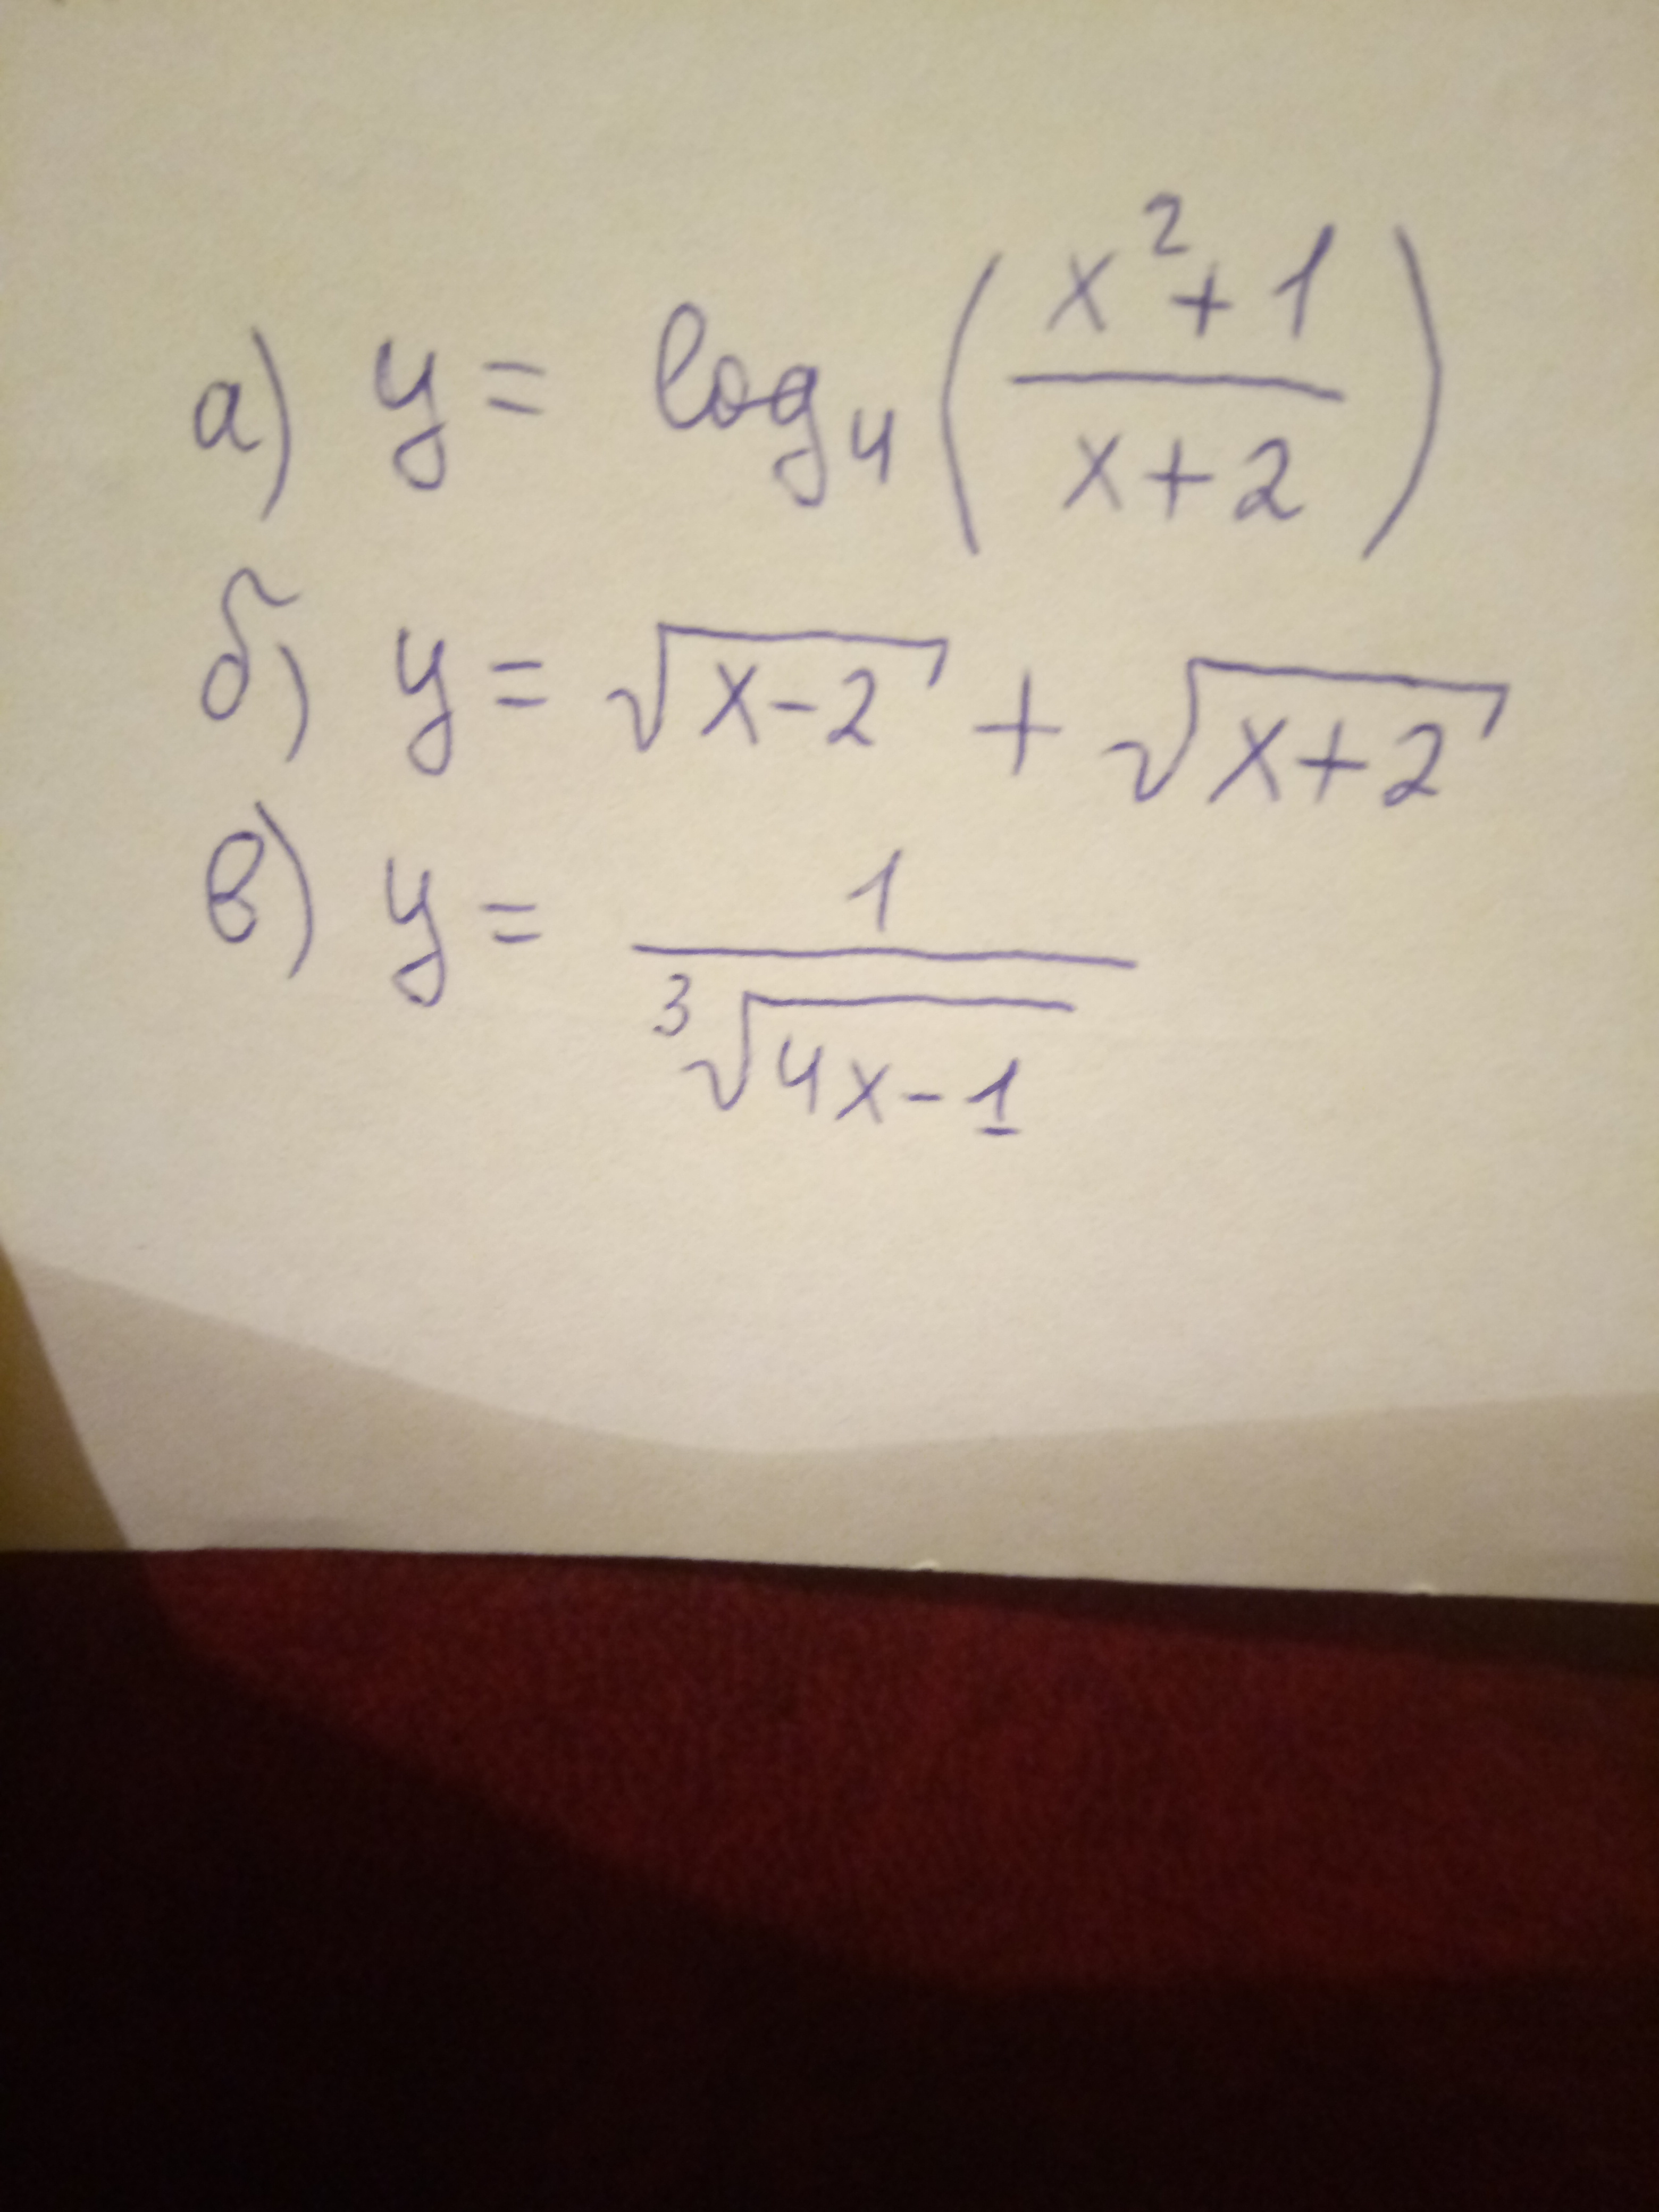 а) y = log₄ ( (x² + 1) / (x + 2) )
б) y = √(x - 2) + √(x + 2)
в) y = 1 / ³√(4x - 1)